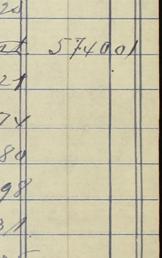 20
at. 574001
21
74
80
98
31